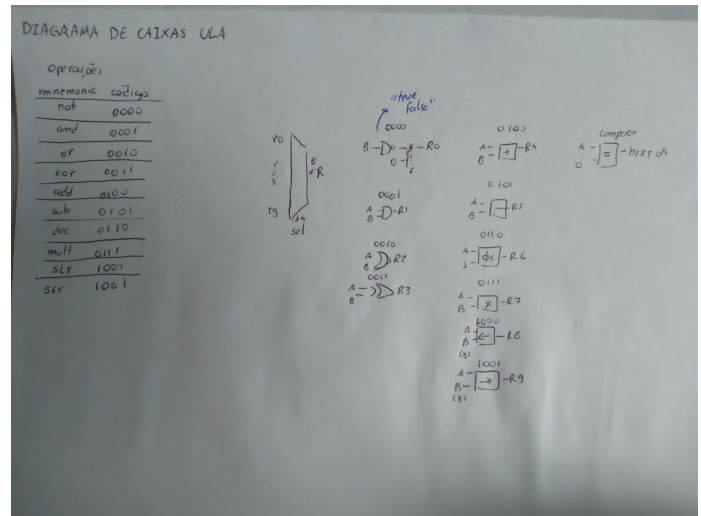 DIAGRAMA DE CAIXAS ULA
operações
mnemonic código
not 0000
and 0001
or 0010
xor 0011
add 0100
sub 0101
dec 0110
mult 0111
slr 1000
srr 1001
r0
r9
8
R
4
sel
"true
false"
0000
B
8
R0
0
0001
A
B
R1
0010
A
B
R2
0011
A
B
R3
0100
A
B
+
R4
0101
A
B
-
R5
0110
A
1
dec
R6
0111
A
B
x
R7
1000
A
B
←
R8
(3)
1001
A
B
→
R9
(3)
comparar
A
0
=